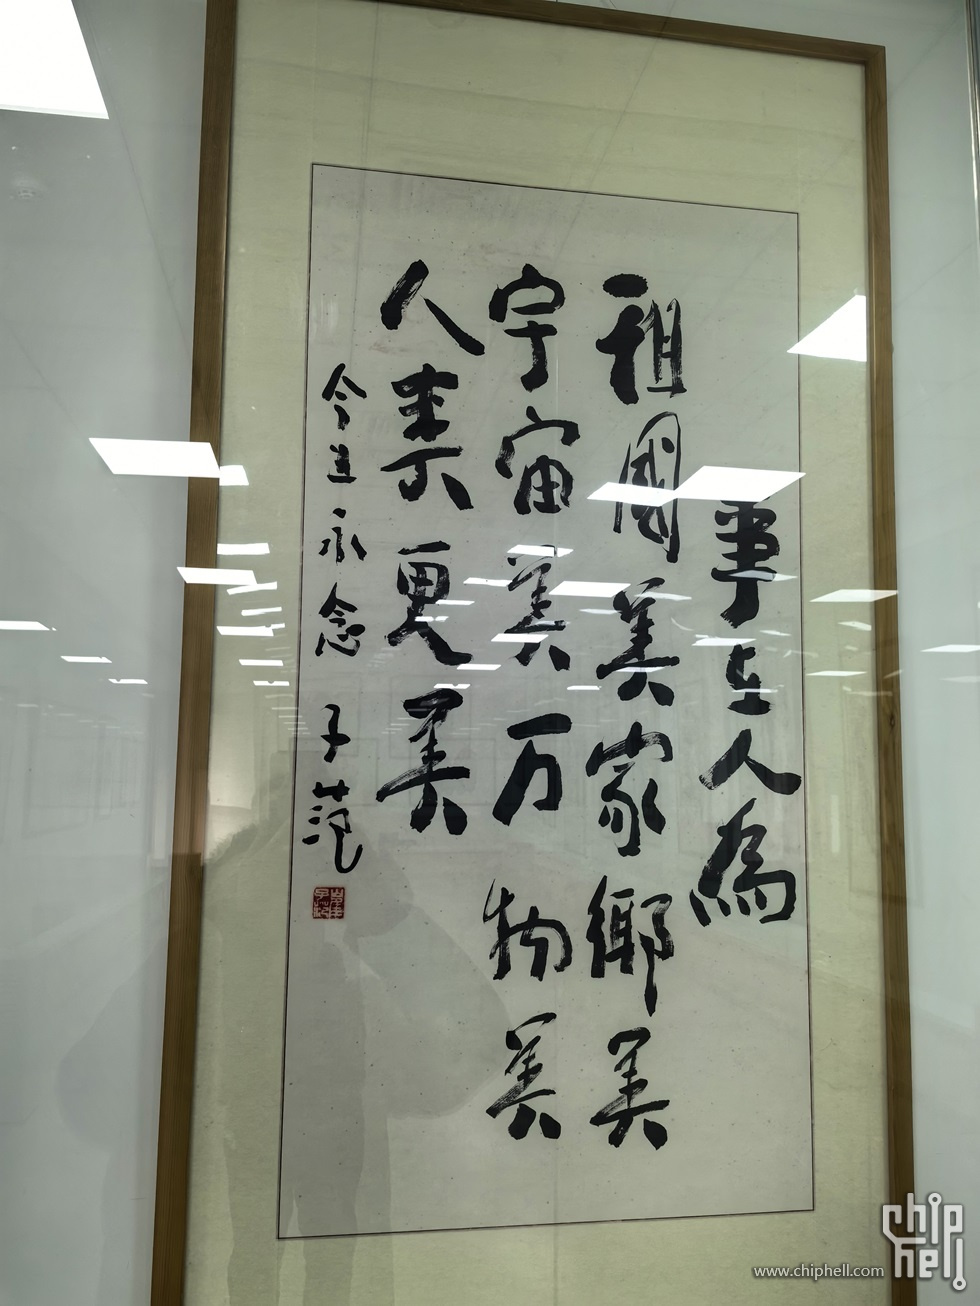 事在人為
祖國美家鄉美
宇宙美万物美
人类更美
今生永念 子范
www.chiphell.com
chip hell